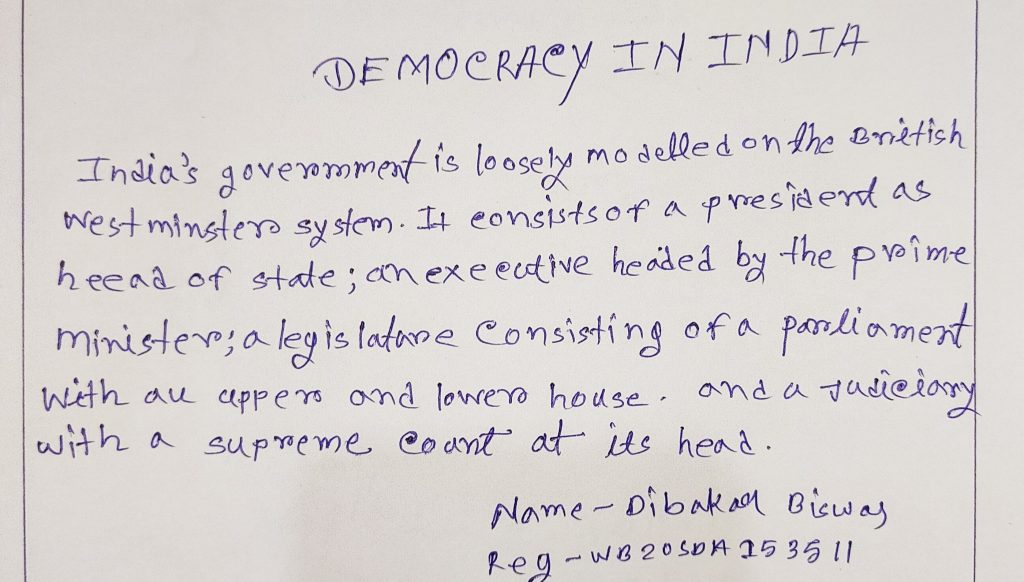 DEMOCRACY IN INDIA
India's government is loosely modelled on the British
westminster system. It consists of a president as
heead of state; an executive headed by the prime
minister; a legislature consisting of a parliament
with an upper and lower house. and a judiciary
with a supreme court at its head.
Name - Dibakar Biswas
Reg - WB20SDA153511